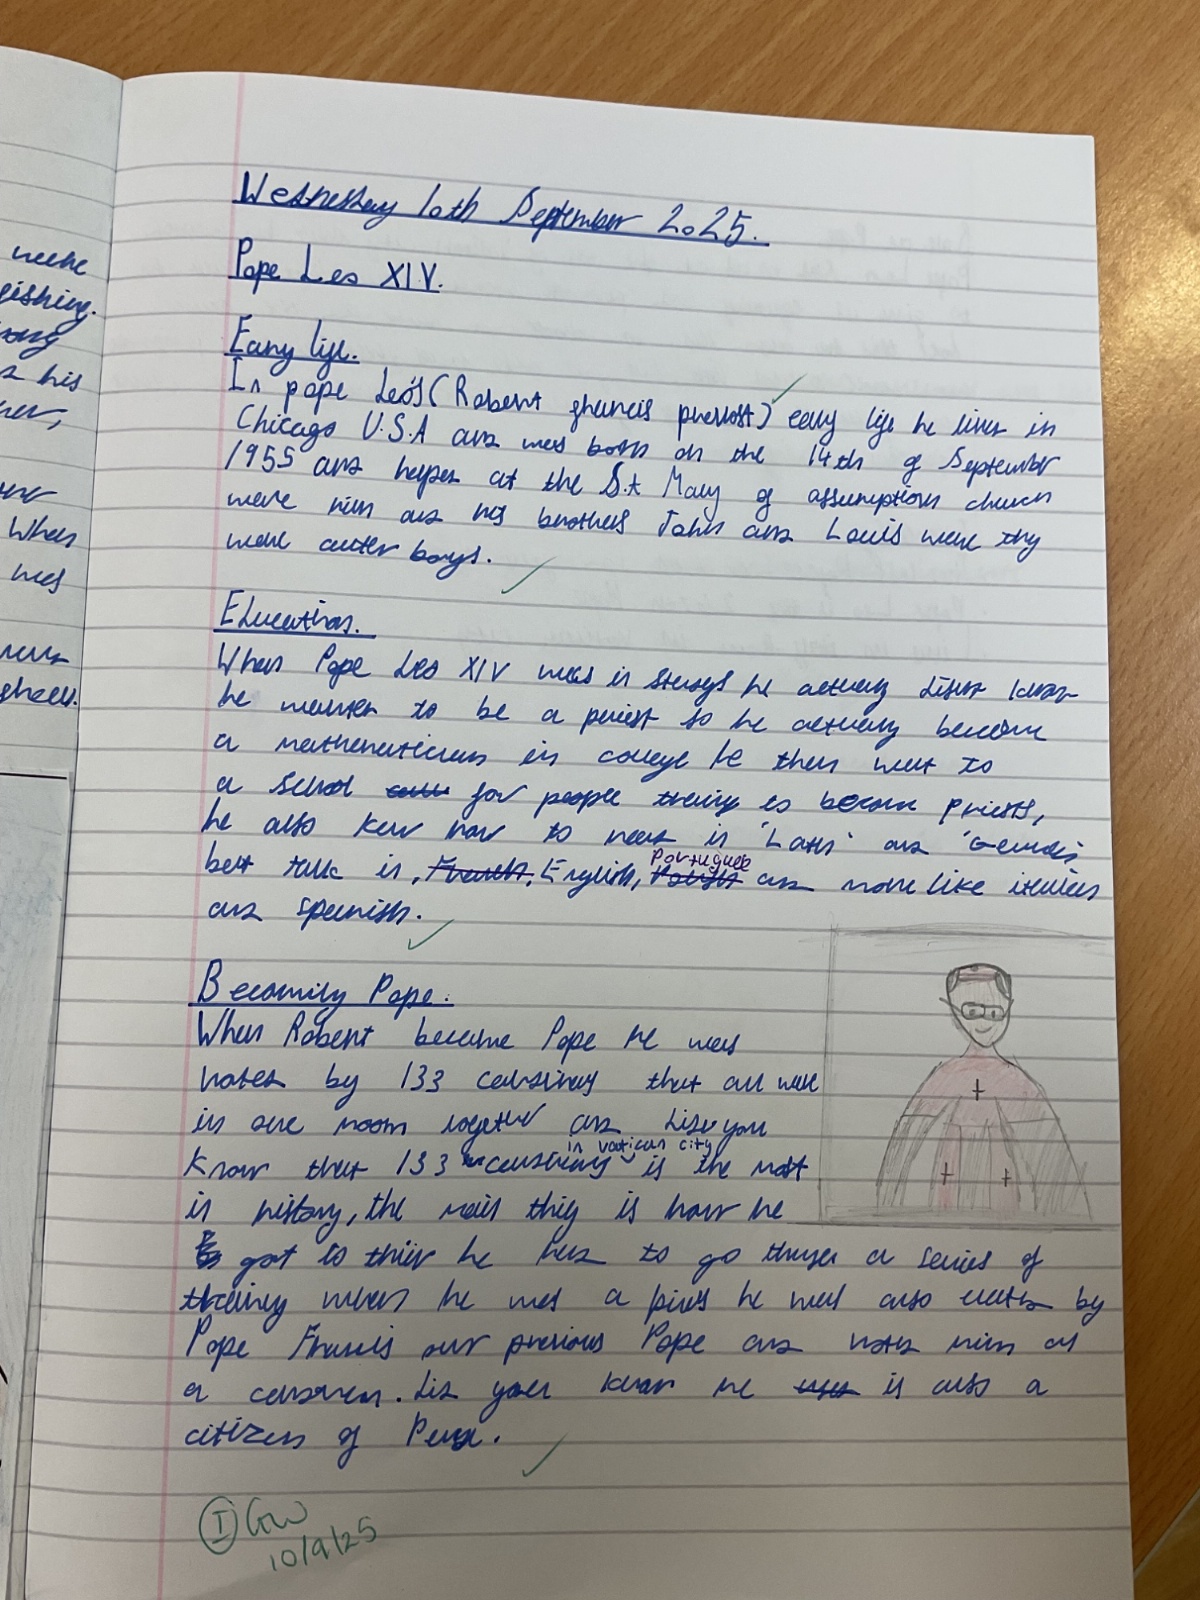 neehe
gishing.
his
When
wes
Wednesday 10th September 2025.
Pope Leo XIV.
Eary life.
In pope Leo's (Robert francis prevost) eary life he lived in
Chicago U.S.A and was born on the 14th of September
1955 and helped at the S.t Mary of assumption church
were him and his brothers John and Louis were thy
were auter boys.
Education.
When Pope Leo XIV was in he actuay didn't know
he wanted to be a priest so he actuay become
a mathematician in college he then went to
a school for people traing to become priests,
he also kew how to read in 'Latin' and 'German'
but talk in, French, English, Portuguese and more like italien
and spanish.
Becoming Pope.
When Robert became Pope he was
voted by 133 that all were
in one room together and did you
know that 133 in vatican city is the most
in history, the main thig is how he
got to their he had to go a series of
traing when he was a he was also by
Pope Francis our previous Pope and him as
a . Did you know he is also a
citizen of .
I GW
10/9/25